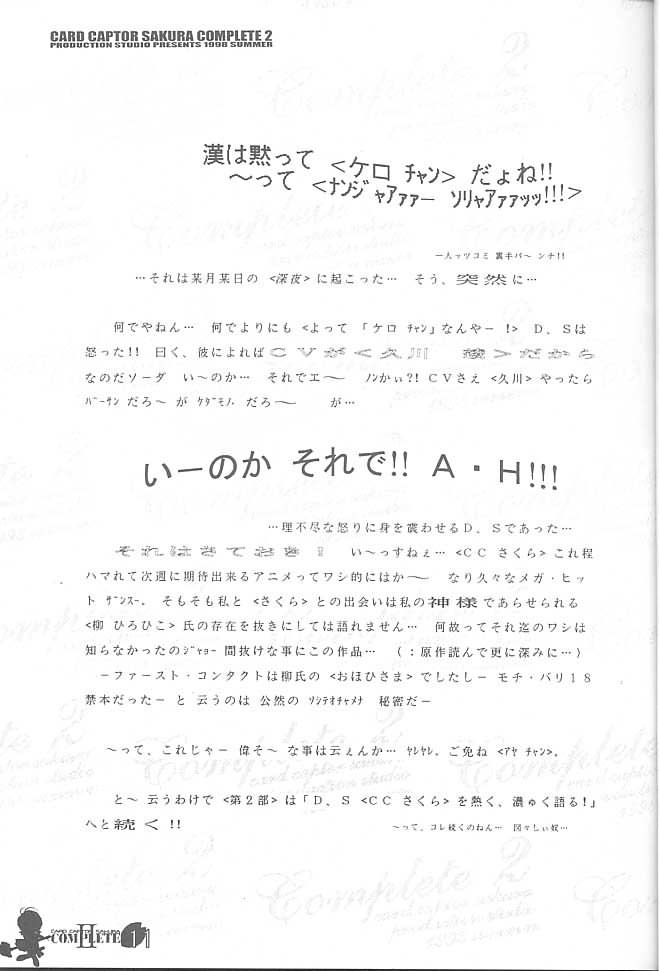 CARD CAPTOR SAKURA COMPLETE 2
PRODUCTION STUDIO PRESENTS 1998 SUMMER
漢は黙って <ケロ ﾁｬﾝ> だょね!!
～って <ﾅﾝｼﾞｬｱｧｧー ｿﾘｬｱｧｧｯｯ!!!>
一人ッツコミ 裏手バ～ ンチ!!
…それは某月某日の <深夜> に起こった… そう、突然に…
何でやねん… 何でよりにも <よって 「ケロ ﾁｬﾝ」なんやー !> D、Sは
怒った!! 曰く、彼によればＣＶが＜久川　綾＞だから
なのだソーダ い～のか… それでエ～ ﾉﾝかぃ?! CVさえ <久川> やったら
ﾊﾞｰｻﾝ だろ～ が ｹﾀﾞﾓﾉﾑ だろ～ が…
いーのか それで!! A・H!!!
…理不尽な怒りに身を震わせるD、Sであった…
それはさておき！ い～っすねぇ… <CC さくら> これ程
ハマれて次週に期待出来るアニメってワシ的にはか～ なり久々なメガ・ヒッ
ト ｻﾞﾝｽｰ. そもそも私と <さくら> との出会いは私の神様であらせられる
<柳 ひろひこ> 氏の存在を抜きにしては語れません… 何故ってそれ迄のワシは
知らなかったのｼﾞｬｮー 間抜けな事にこの作品… (:原作読んで更に深みに…)
－ファースト・コンタクトは柳氏の <おほひさま> でしたしー モチ・バリ１８
禁本だったー と 云うのは 公然の ｿｼﾃｵﾁｬﾒﾅ 秘密だ－
～って、これじゃー 偉そ～ な事は云ぇんか… ﾔﾚﾔﾚ. ご免ね <ｱﾔ ﾁｬﾝ>.
と～ 云うわけで <第２部> は「D、S <CC さくら> を熱く、濃ゅく語る!」
へと続く!!
～って、コレ続くのねん… 図々しぃ奴…
CARD CAPTOR SAKURA
COMPLETE II 11